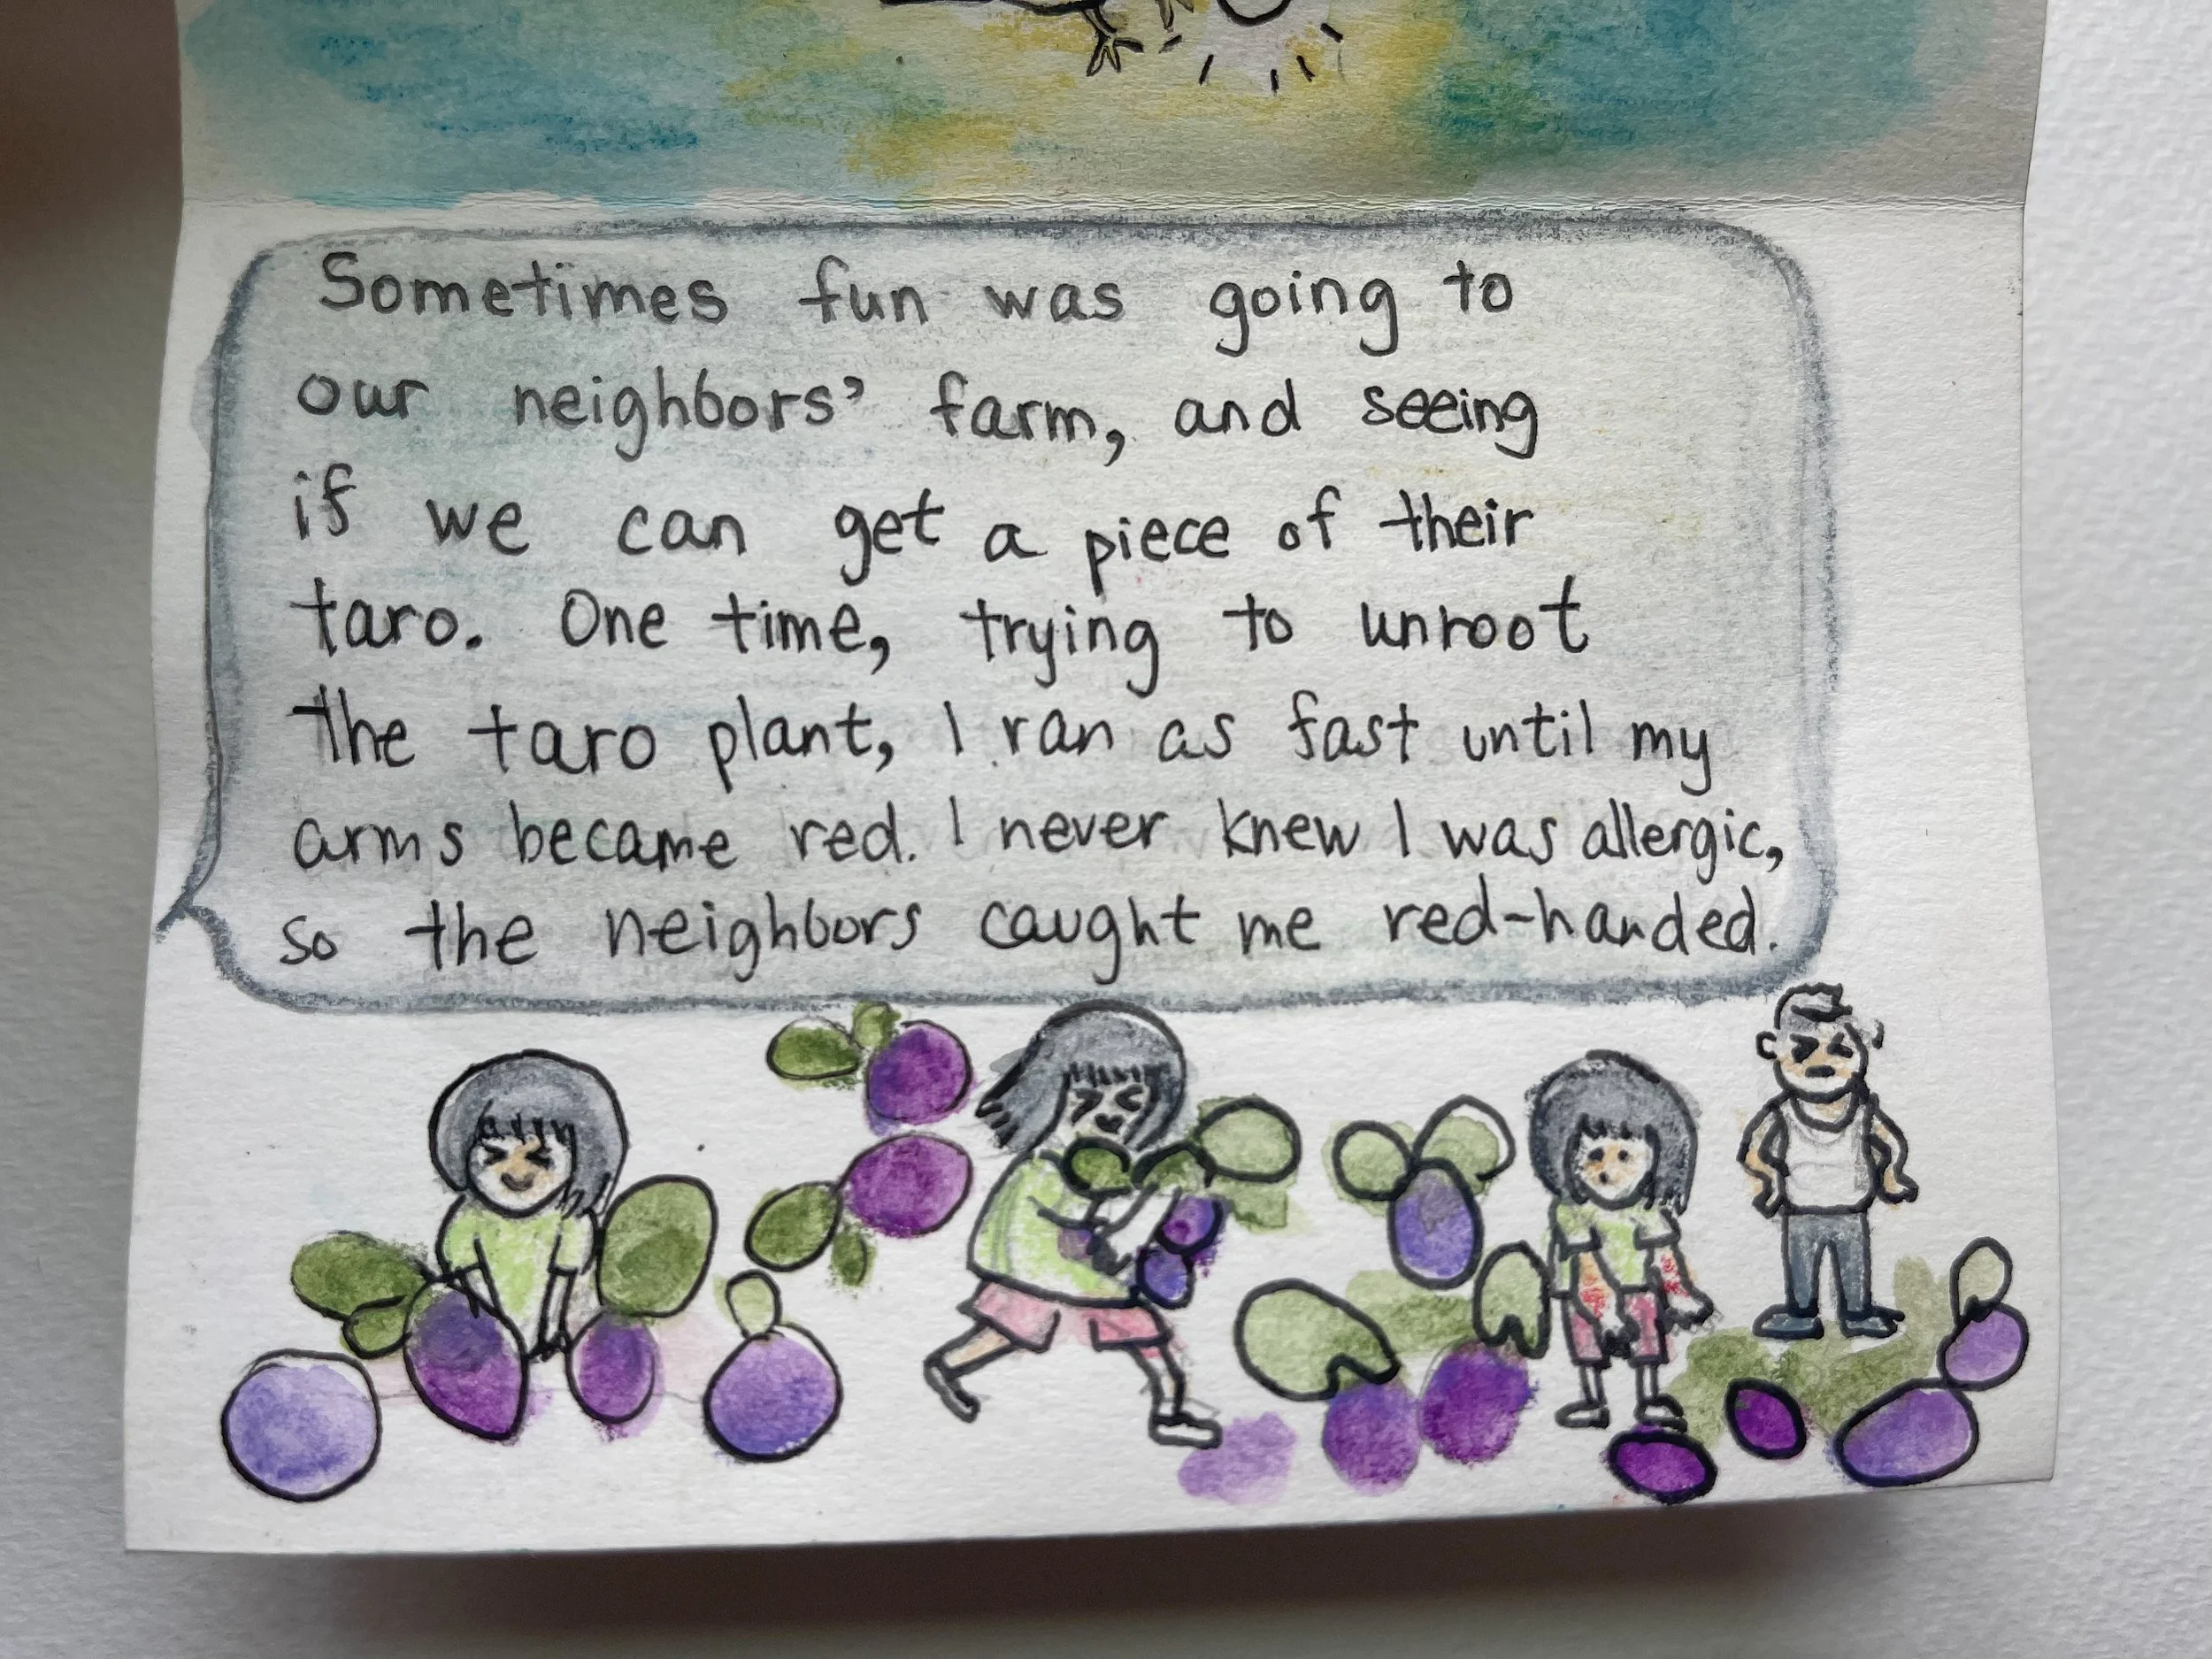 Sometimes fun was going to
our neighbors' farm, and seeing
if we can get a piece of their
taro. One time, trying to unroot
the taro plant, I ran as fast until my
arms became red. I never knew I was allergic,
so the neighbors caught me red-handed.